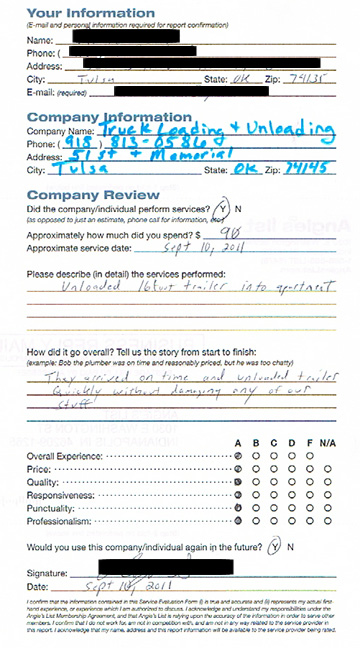 Your Information
(E-mail and personal information required for report confirmation)
Name:
Phone: (
Address:
City: Tulsa State: OK Zip: 74135
E-mail: (required)
Company Information
Company Name: Truck Loading + Unloading
Phone: (918) 813-0586
Address: 51st + Memorial
City: Tulsa State: OK Zip: 74145
Company Review
Did the company/individual perform services? Y N
(as opposed to just an estimate, phone call for information, etc.)
Approximately how much did you spend? $ 90
Approximate service date: Sept 10, 2011
Please describe (in detail) the services performed:
Unloaded 16foot trailer into apartment
How did it go overall? Tell us the story from start to finish:
(example: Bob the plumber was on time and reasonably priced, but he was too chatty)
They arrived on time and unloaded trailer
Quickly without damaging any of our
stuff
A B C D F N/A
Overall Experience:
Price:
Quality:
Responsiveness:
Punctuality:
Professionalism:
Would you use this company/individual again in the future? Y N
Signature:
Date: Sept 10, 2011
I confirm that the information contained in this Service Evaluation Form (i) is true and accurate and (ii) represents my actual first-
hand experience, or experience which I am authorized to discuss. I acknowledge and understand my responsibilities under the
Angie's List Membership Agreement, and that Angie's List is relying upon the accuracy of the information in order to serve other
members. I confirm that I do not work for, am not in competition with, and am not in any way related to the service provider in
this report. I acknowledge that my name, address and this report information will be available to the service provider being rated.